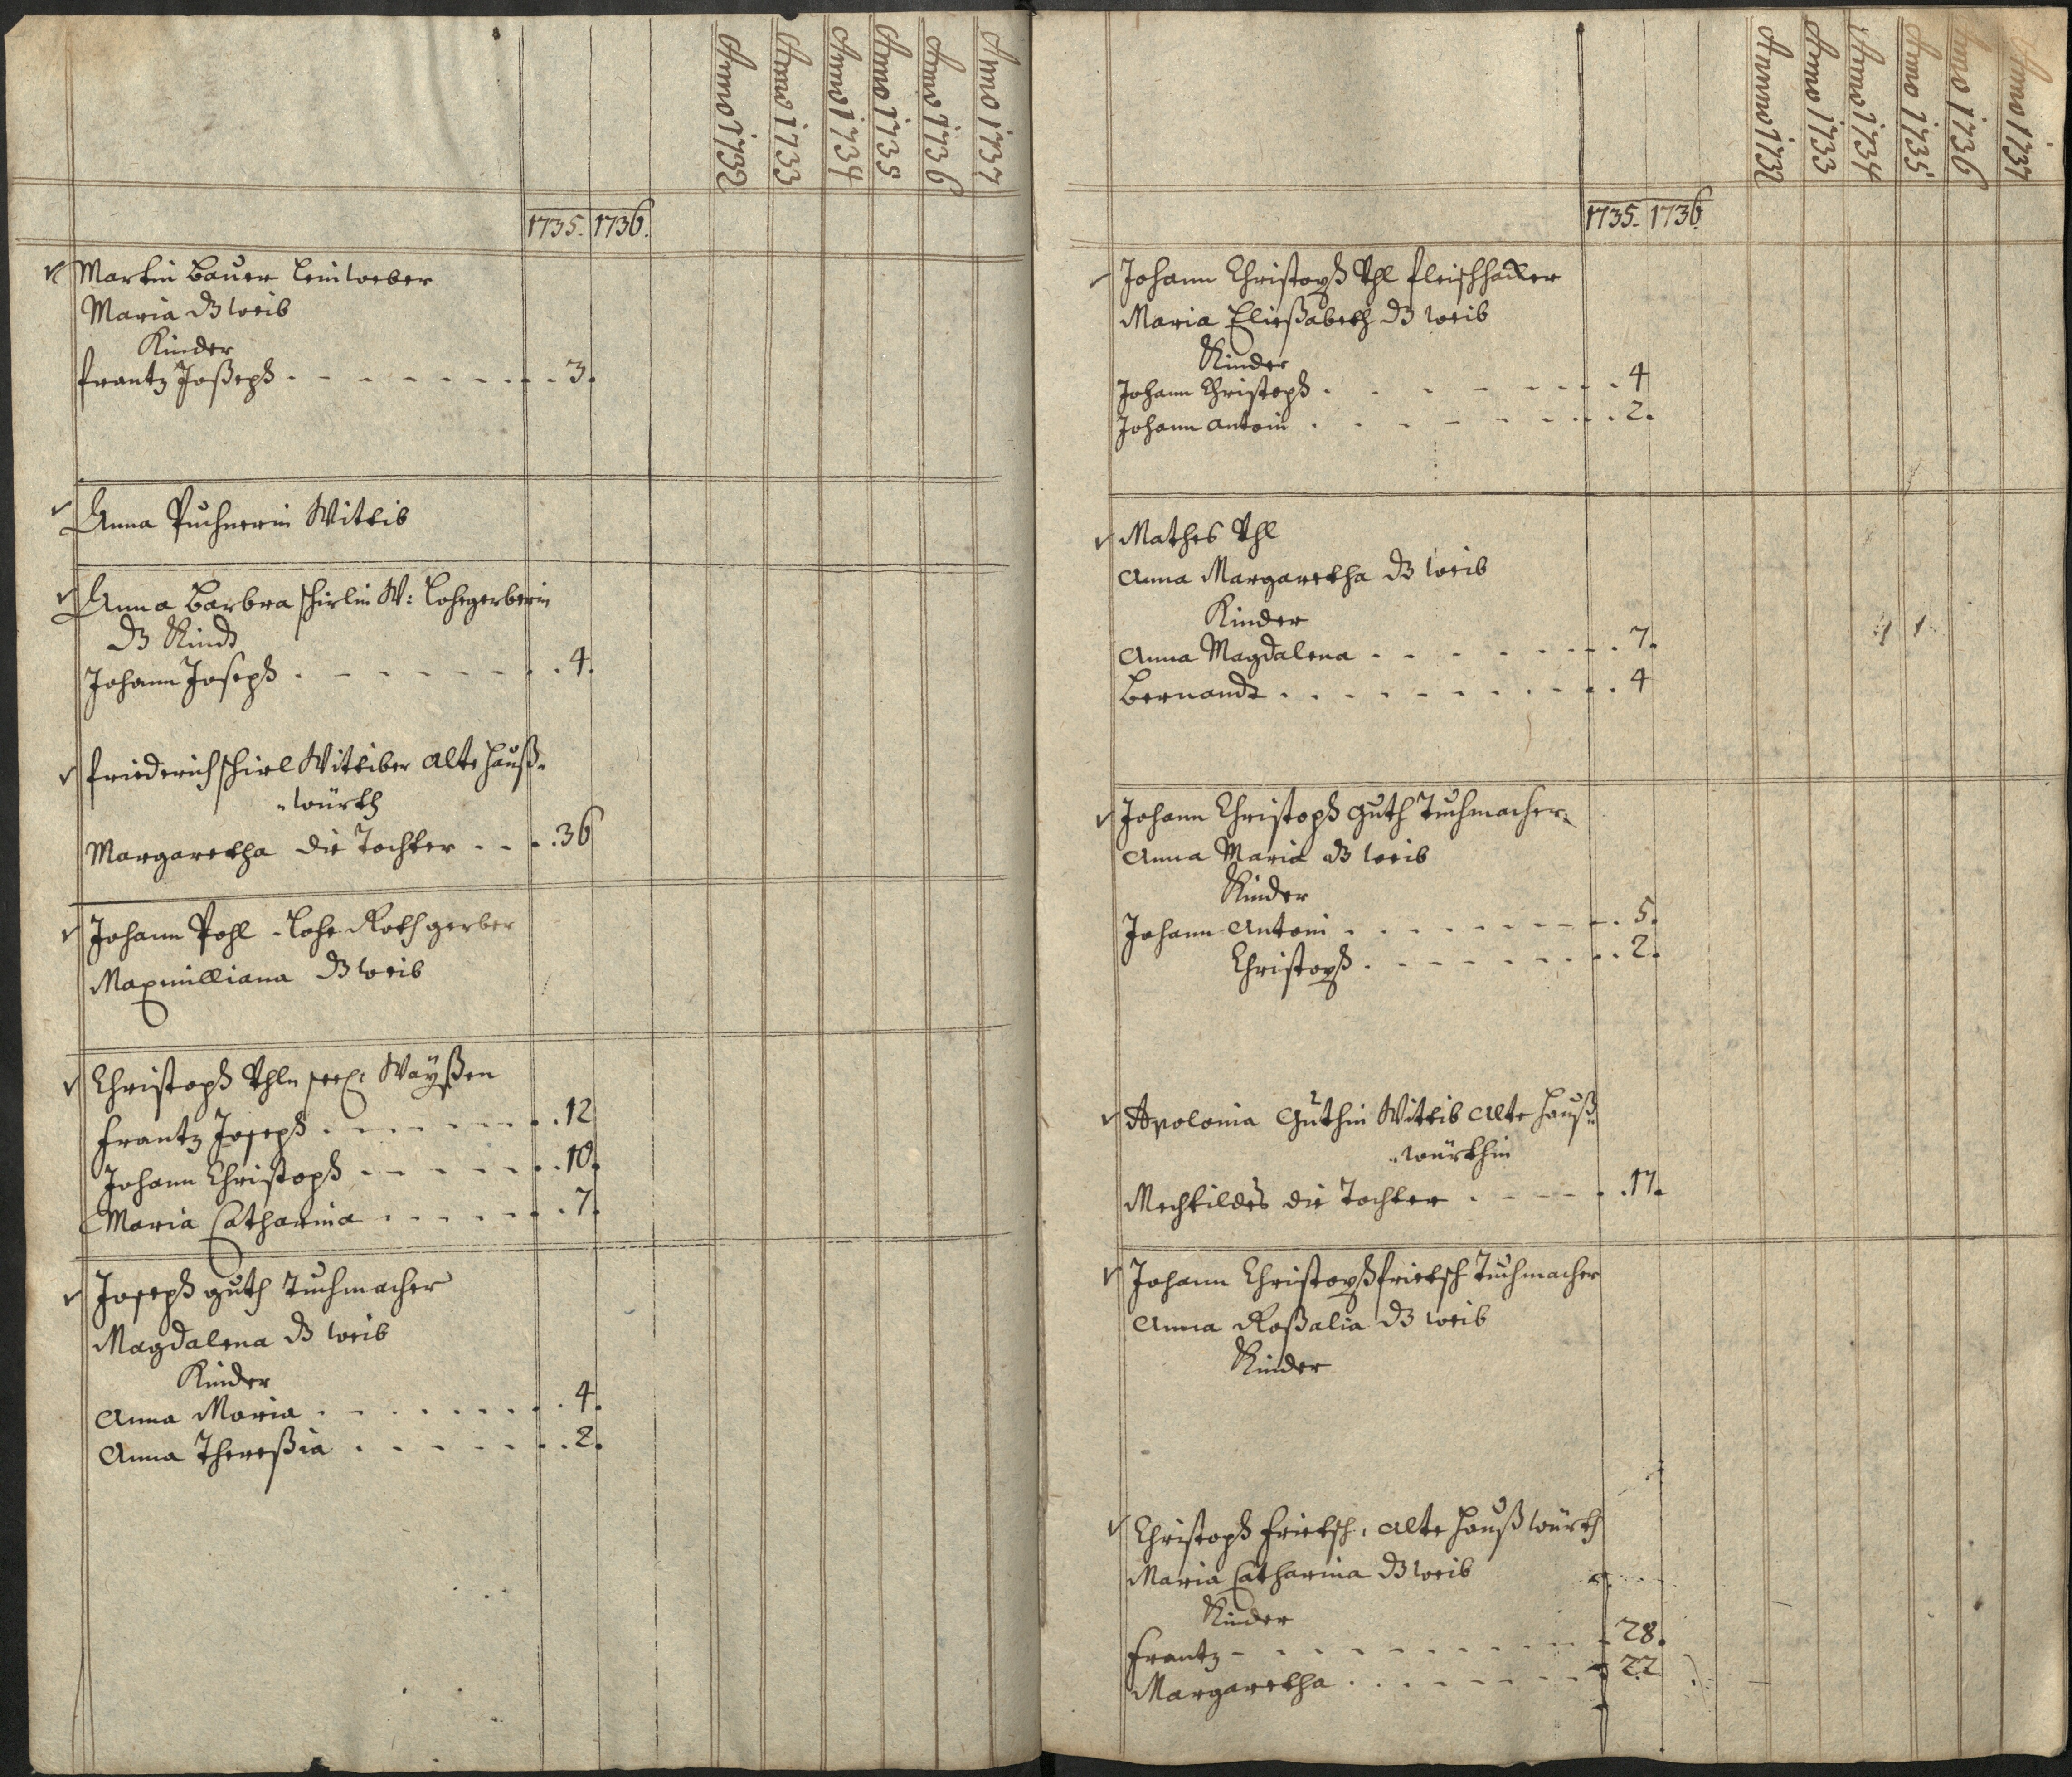 Anno 1732 Anno 1733 Anno 1734 Anno 1735 Anno 1736 Anno 1737
1735. 1736.
Martin Bauer Leinweber
Maria dß weib
Kinder
Frantz Joßeph . . . . . . . . . 3.
Anna Puchnerin Wittib
Anna Barbra Schirlin W: Lohegerberin
dß Kindt
Johann Joseph . . . . . . . . 4.
Friederich Schirl Wittiber alte Hauß-
-würth
Margaretha die Tochter . . . . 36
Johann Pohl - Lohe Rothgerber
Maxmilliana dß weib
Christoph Vhln seel: Waÿßen
Frantz Joseph . . . . . . . . 12
Johann Christoph . . . . . . . 10.
Maria Catharina . . . . . . . 7.
Joseph Guth Tuchmacher
Magdalena dß weib
Kinder
Anna Maria . . . . . . . . . 4.
Anna Thereßia . . . . . . . . 2.
Anno 1732 Anno 1733 Anno 1734 Anno 1735 Anno 1736 Anno 1737
1735. 1736
Johann Christoph Vhl Fleischhacker
Maria Eließabeth dß weib
Kinder
Johann Christoph . . . . . . . . 4
Johann Antoni . . . . . . . . . 2.
Mathes Vhl
Anna Margaretha dß weib
Kinder
Anna Magdalena . . . . . . . . 7.
Bernandt . . . . . . . . . . . 4
Johann Christoph Guth Tuchmacher
Anna Maria dß weib
Kinder
Johann Antoni . . . . . . . . . 5.
Christoph . . . . . . . . . 2.
Apolonia Guthin Wittib alte Hauß-
-würthin
Mechtildes die Tochter . . . . . . 17.
Johann Christoph Frietsch Tuchmacher
Anna Roßalia dß weib
Kinder
Christoph Frietsch, alte Haußwürth
Maria Catharina dß weib
Kinder
Frantz - . . . . . . . . . . . 28.
Margaretha . . . . . . . . . 22